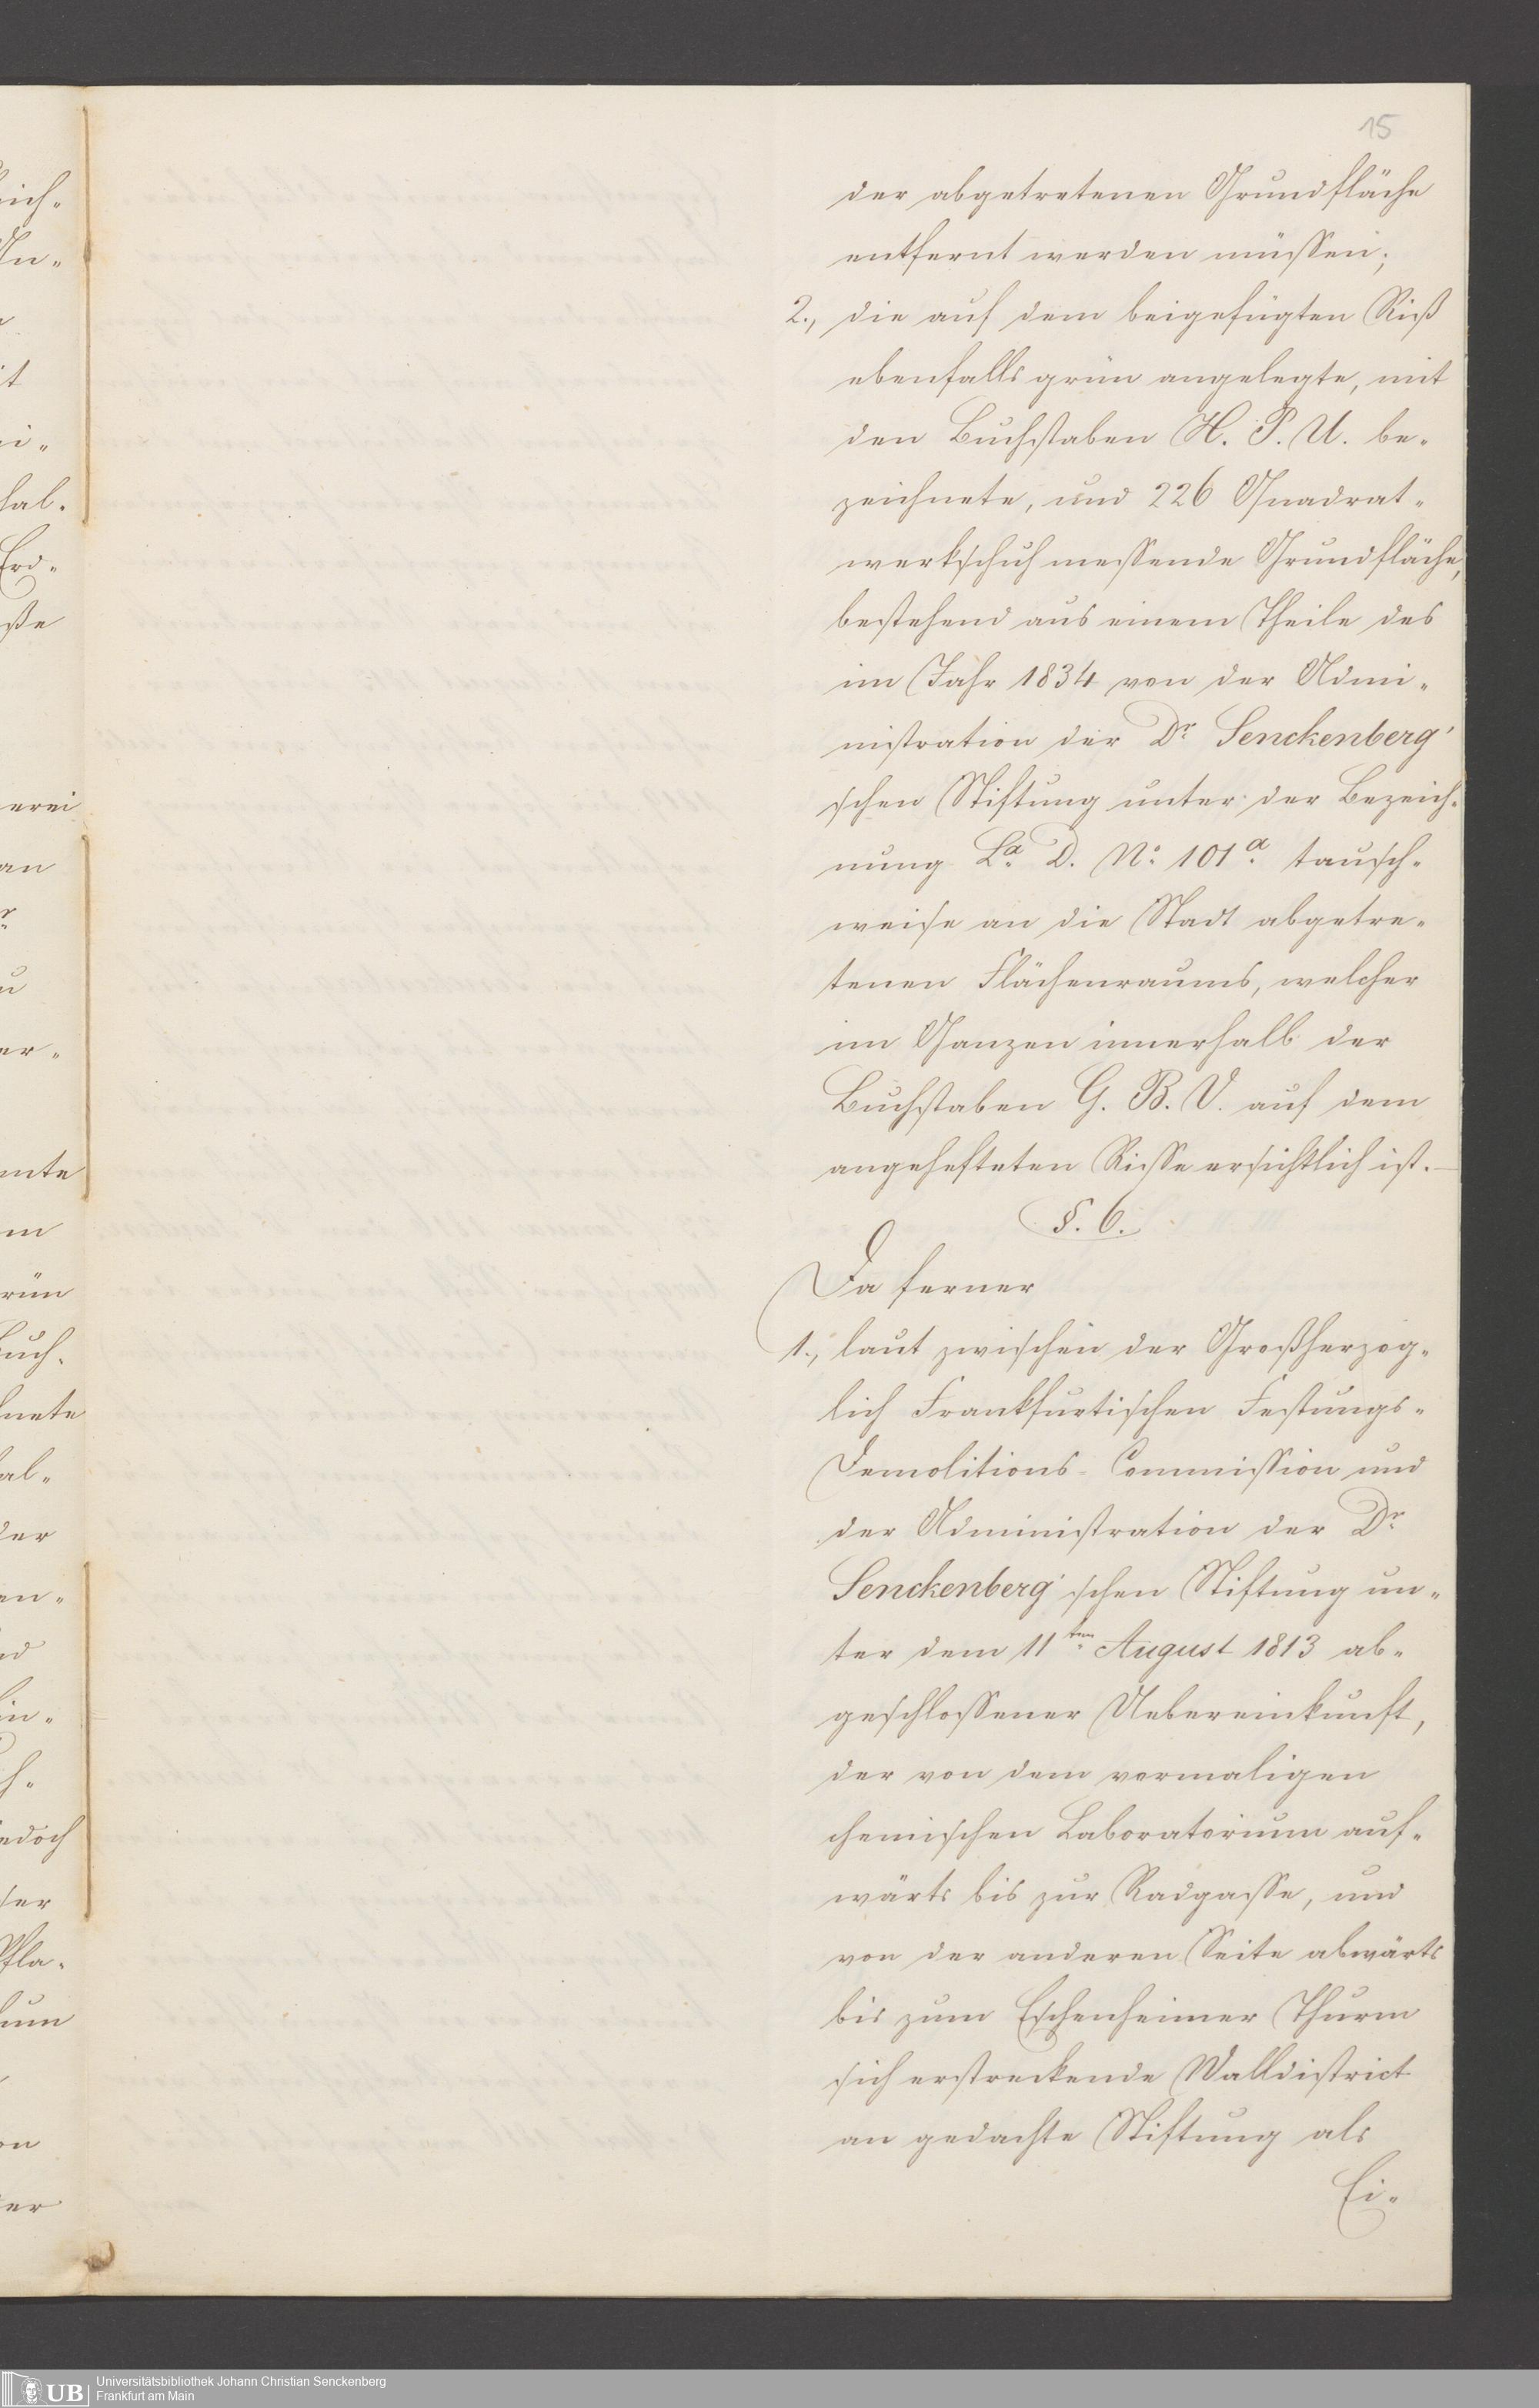 15
der abgetretenen Grundfläche
entfernt werden müssen;
2., die auf dem beigefügten Riß
ebenfalls grün angelegte, mit
den Buchstaben H. P. U. be-
zeichnete, und 226 Quadrat-
werkschuh messende Grundfläche,
bestehend aus einem Theile des
im Jahr 1834 von der Admi-
nistration der Dr. Senckenberg'
schen Stiftung unter der Bezeich-
nung La. D. No. 101a. tausch-
weise an die Stadt abgetre-
tenen Flächenraums, welcher
im Ganzen innerhalb der
Buchstaben G. B. V. auf dem
angehefteten Risse ersichtlich ist.—
§. 6.
Da ferner
1., laut zwischen der Großherzog-
lich Frankfurtischen Festungs-
Demolitions-Commission und
der Administration der Dr.
Senckenberg'schen Stiftung un-
ter dem 11ten August 1813 ab-
geschlossener Uebereinkunft,
der von dem vormaligen
chemischen Laboratorium auf-
wärts bis zur Radgasse, und
von der anderen Seite abwärts
bis zum Eschenheimer Thurm
sich erstreckende Walldistrict
an gedachte Stiftung als
Ei-
UB Universitätsbibliothek Johann Christian Senckenberg
Frankfurt am Main